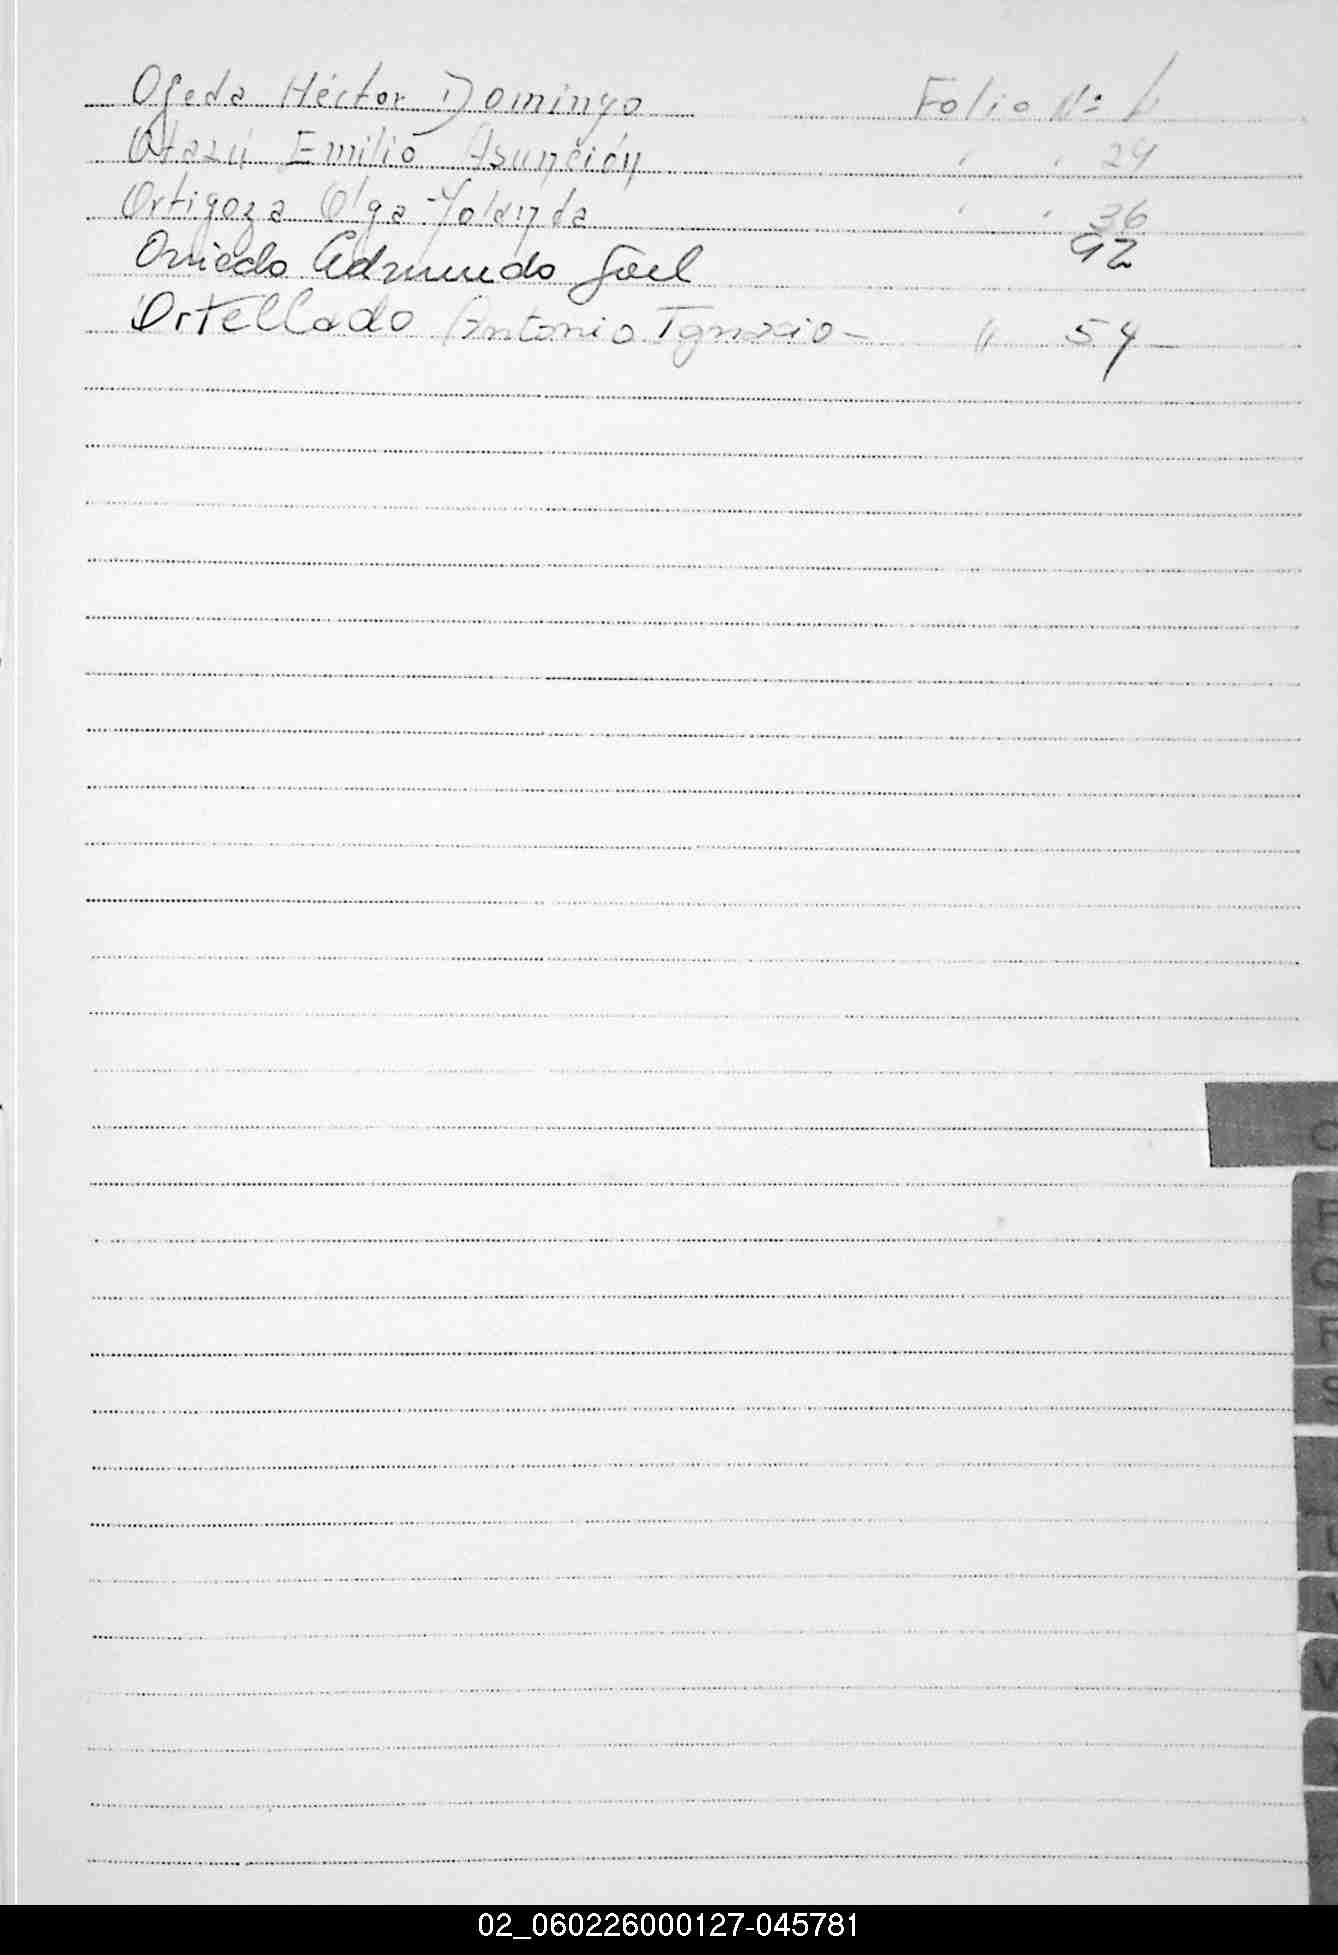 Ojeda Héctor Domingo Folio Nº 6
Otazú Emilio Asunción " " 24
Ortigoza Olga Yolanda " " 36
Oviedo Edmundo Joel 42
Ortellado Antonio Ignacio - " 54 -
O
P
Q
R
S
U
V
02_060226000127-045781